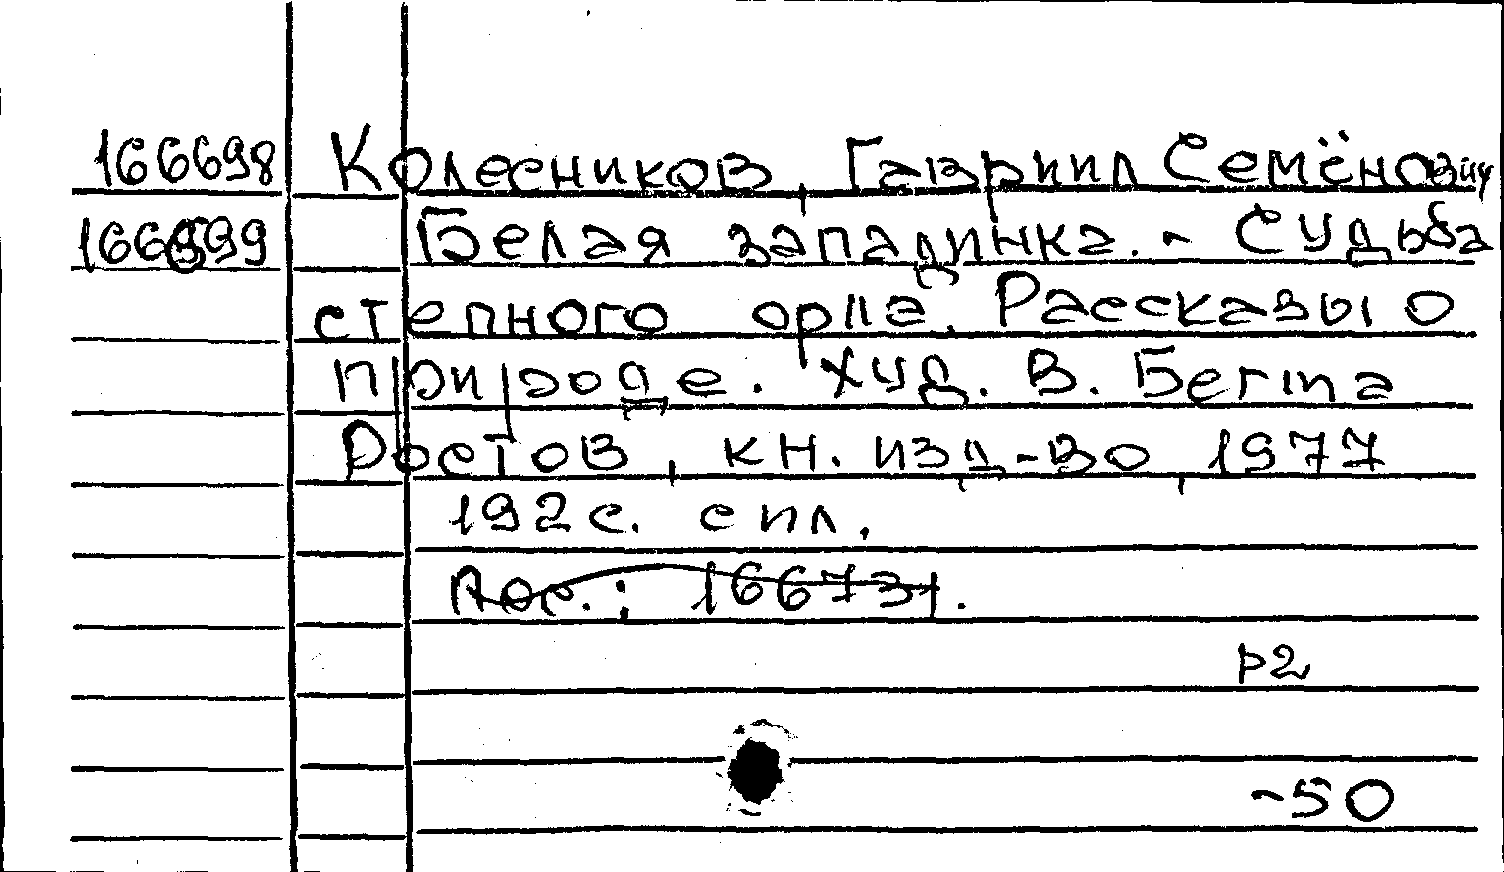 166698 Колесников, Гавриил Семёнович
166699 Белая западинка. - Судьба
степного орла. Рассказы о
природе. Худ. В. Бегма
Ростов, кн. изд-во, 1977
192с. с ил.
Рос.: 166731.
р2
-50